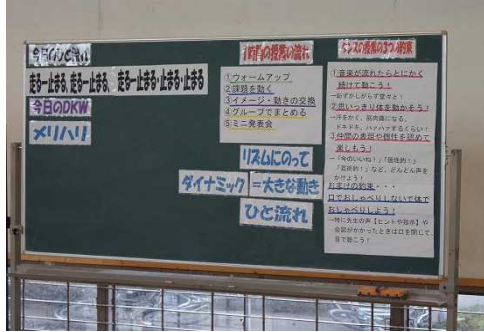 今日のひと流れ
走る－止まる、走る－止まる、走る－止まる・止まる・止まる
今日のDKW
メリハリ
1時間の授業の流れ
①ウォームアップ
②課題を動く
③イメージ・動きの交換
④グループでまとめる
⑤ミニ発表会
リズムにのって
ダイナミック＝大きな動き
ひと流れ
ダンスの授業の3つの約束
①音楽が流れたらとにかく
続けて動こう！
→恥ずかしがらず堂々と！
②思いっきり体を動かそう！
→汗をかく、筋肉痛になる、
ドキドキ、ハァハァするくらい！
③仲間の表現や個性を認めて
楽しもう！
→「今のいいね！」「個性的！」
「芸術的！」など、どんどん声を
かけよう！
おまけの約束・・・
口でおしゃべりしないで体で
おしゃべりしよう！
→特に先生の声【ヒントや指示】や
音楽がかかったときは口を閉じて、
目で動こう！